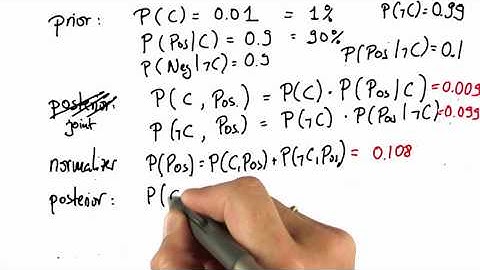 prior: P(C) = 0.01 = 1% P(¬C)=0.99
P(Pos|C) = 0.9 = 90% P(Pos|¬C)=0.1
P(Neg|¬C)=0.9
posterior: P(C, Pos.) = P(C) · P(Pos|C) =0.009
joint P(¬C, Pos.) = P(¬C) · P(Pos|¬C) =0.099
normalizer P(Pos) = P(C,Pos) + P(¬C,Pos) = 0.108
posterior: P(C